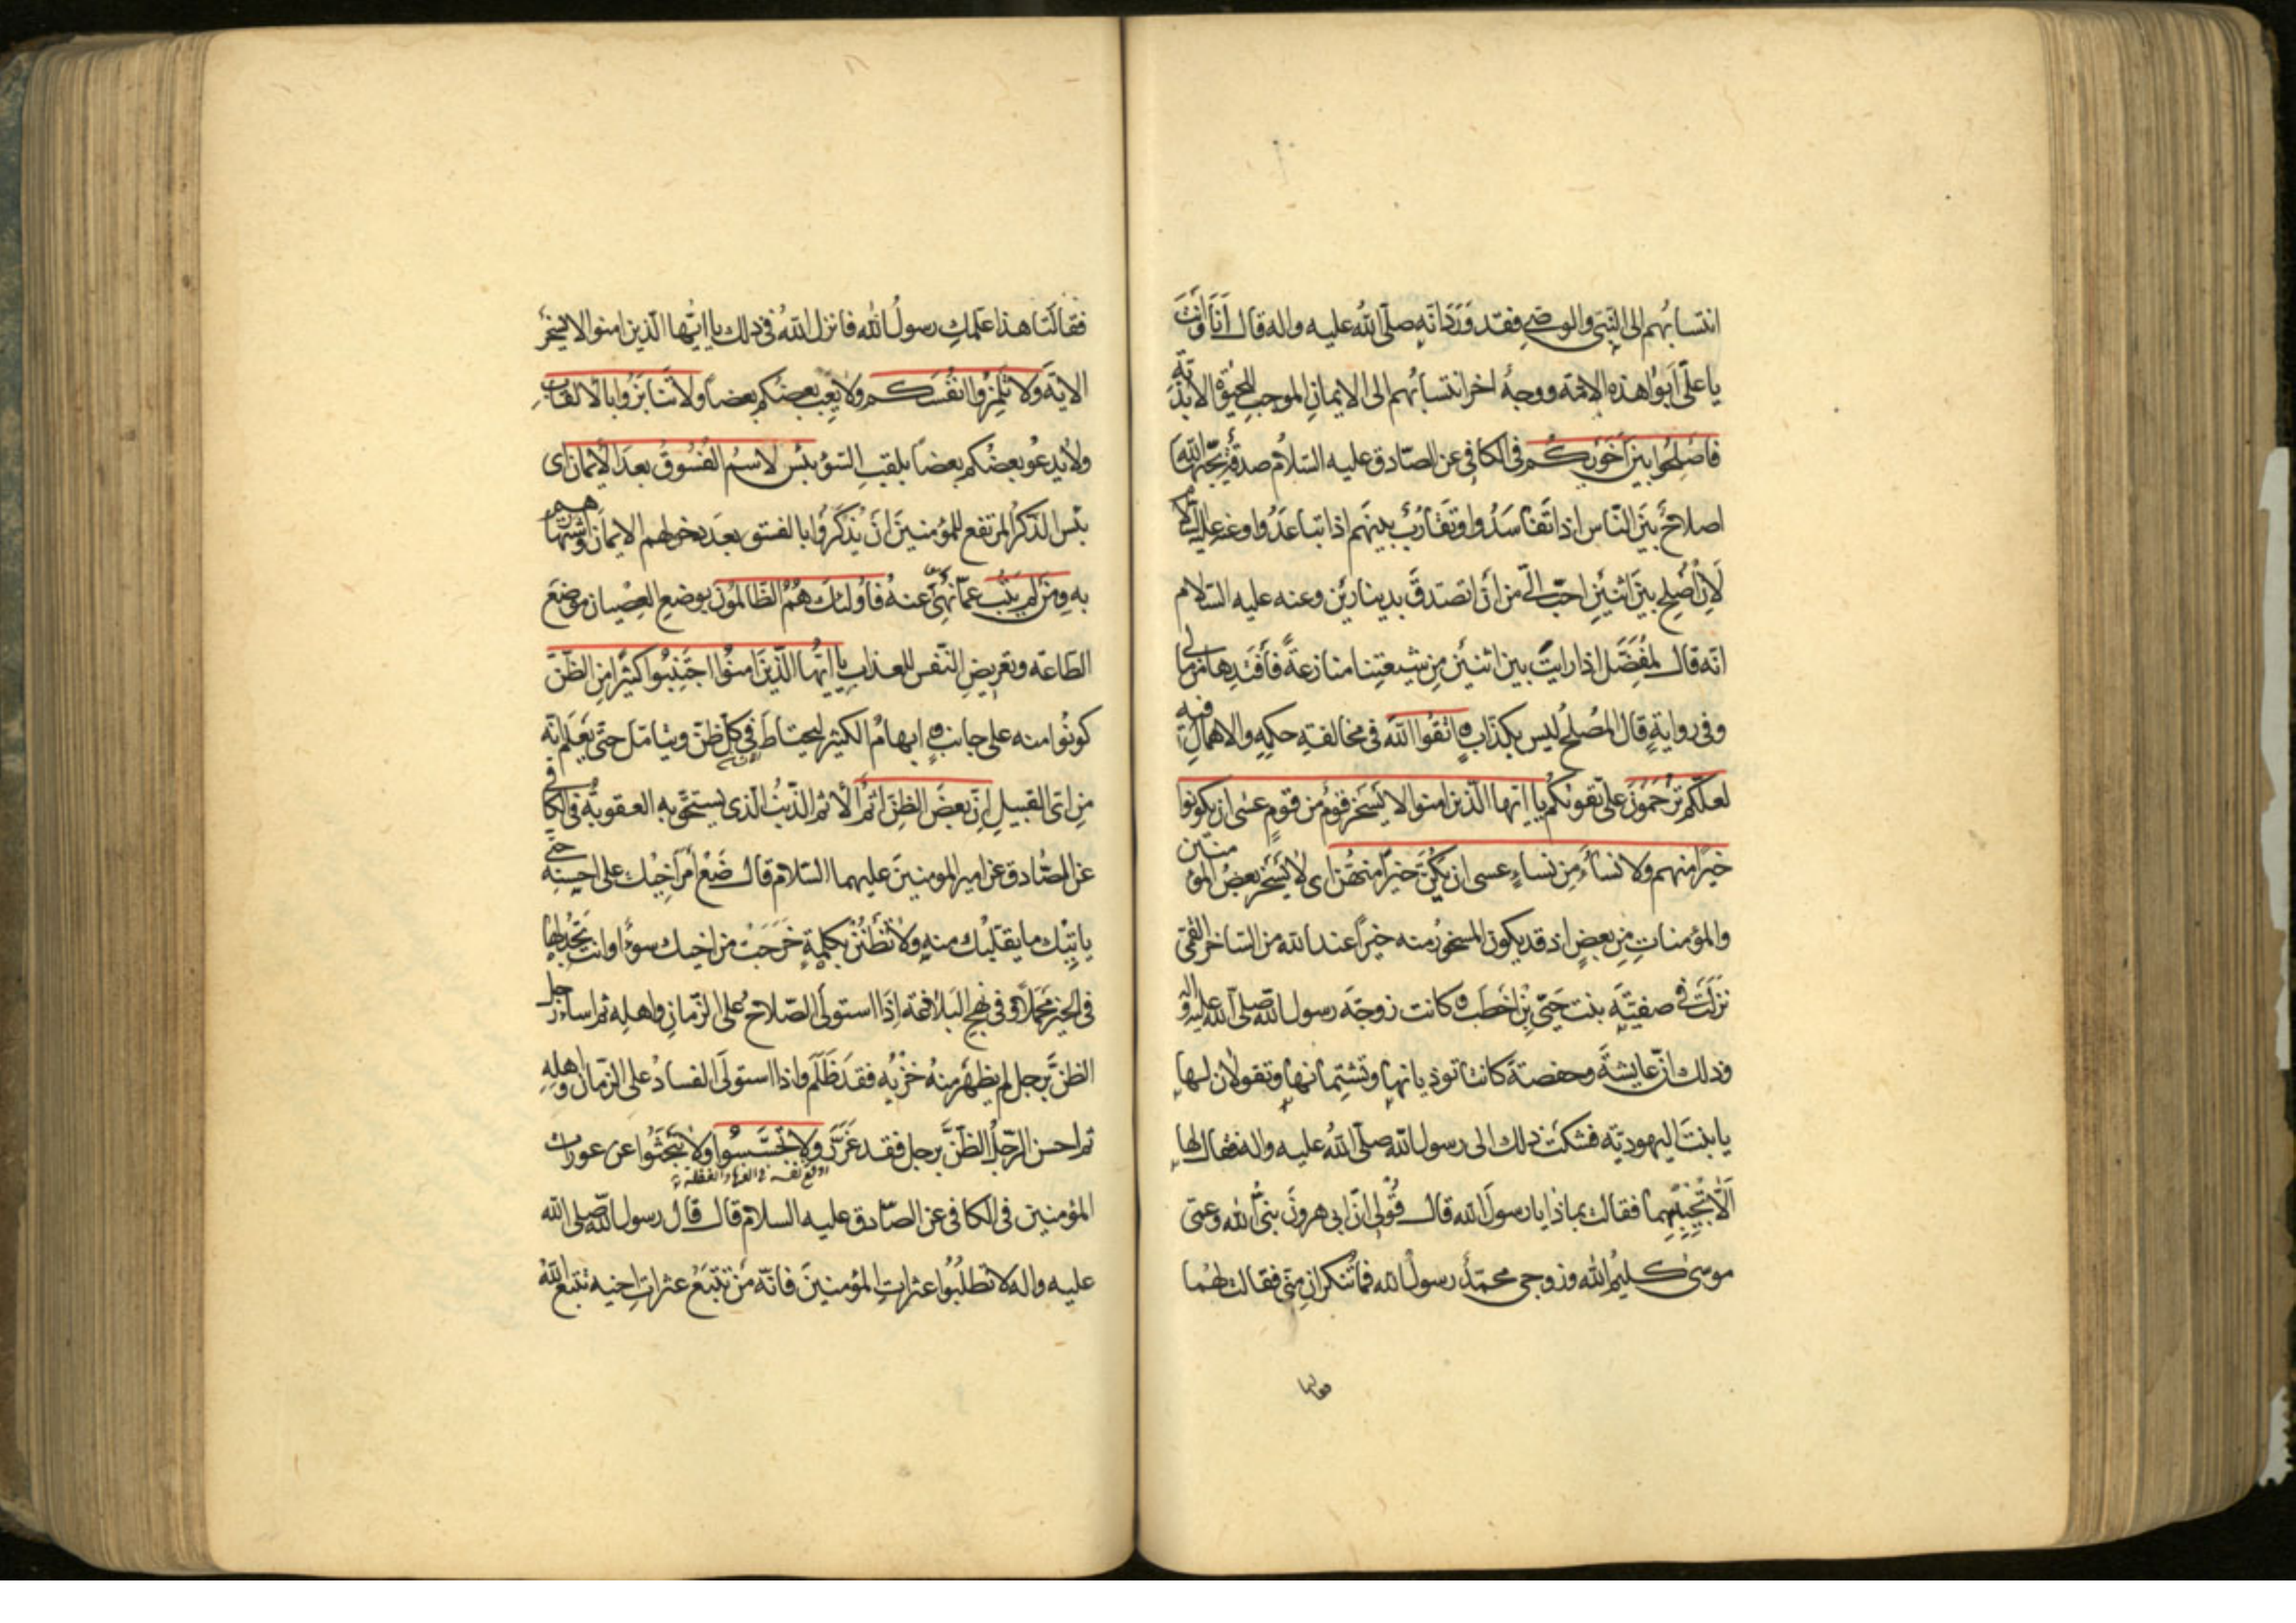 انتسابهم الى النبى والوصى فقد ورد انه صلى الله عليه واله قال انا وانت
يا على ابوا هذه الامة ووجه اخر انتسابهم الى الايمان الموجب للحيوة الابدية
فاصلحوا بين اخويكم فى الكافى عن الصادق عليه السلام صدقة يحبها الله
اصلاح بين الناس اذا تفاسدوا وتقارب بينهم اذا تباعدوا وعنه عليه السلام
لان اصلح بين اثنين احب الى من ان اتصدق بدينارين وعنه عليه السلام
انه قال لمفضل اذا رايت بين اثنين من شيعتنا منازعة فافتدها من مالى
وفى رواية قال المصلح ليس بكذاب واتقوا الله فى مخالفة حكمه والاهمال فيه
لعلكم ترحمون على تقويكم يا ايها الذين امنوا لا يسخر قوم من قوم عسى ان يكونوا
خيرا منهم ولا نساء من نساء عسى ان يكن خيرا منهن اى لا يسخر بعض المؤمنين
والمؤمنات من بعض اذ قد يكون المسخور منه خيرا عند الله من الساخر القمى
نزلت فى صفية بنت حيى بن اخطب وكانت زوجة رسول الله صلى الله عليه واله
وذلك ان عايشة وحفصة كانتا توذيانها وتشتمانها وتقولان لها
يا بنت اليهودية فشكت ذلك الى رسول الله صلى الله عليه واله فقال لها
الا تجيبيهما فقالت بماذا يا رسول الله قال قولى ان ابى هرون نبى الله وعمى
موسى كليم الله وزوجى محمد رسول الله فما تنكران منى فقالت لهما
فقالتا
فقالتا هذا علمك رسول الله فانزل الله فى ذلك يا ايها الذين امنوا لا يسخر
الاية ولا تلمزوا انفسكم ولا يعب بعضكم بعضا ولا تنابزوا بالالقاب
ولا يدعو بعضكم بعضا بلقب السوء بئس الاسم الفسوق بعد الايمان اى
بئس الذكر المرتفع للمؤمنين ان يذكروا بالفسق بعد دخولهم الايمان واشتهارهم
به ومن لم يتب عما نهى عنه فاولئك هم الظالمون بوضع العصيان موضع
الطاعة وتعريض النفس للعذاب يا ايها الذين امنوا اجتنبوا كثيرا من الظن
كونوا منه على جانب وابهام الكثير ليحتاط فى كل ظن ويتامل حتى يعلم انه
من اى القبيل ان بعض الظن اثم الاثم الذنب الذى يستحق به العقوبة فى الكافى
عن الصادق عن امير المومنين عليهما السلام قال ضع امر اخيك على احسنه حتى
ياتيك ما يقلبك منه ولا تظنن بكلمة خرجت من اخيك سوءا وانت تجد لها
فى الخير محملا وفى نهج البلاغة اذا استولى الصلاح على الزمان واهله ثم اساء رجل
الظن برجل لم يظهر منه خزية فقد ظلم واذا استولى الفساد على الزمان واهله
ثم احسن الرجل الظن برجل فقد غرر ولا تجسسوا ولا تبحثوا عن عورات
المؤمنين فى الكافى عن الصادق عليه السلام قال قال رسول الله صلى الله
عليه واله لا تطلبوا عثرات المؤمنين فانه من تتبع عثرات اخيه تتبع الله